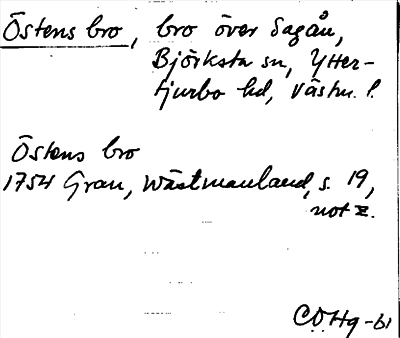 Östens bro, bro över Sagån,
Björksta sn, Ytter-
tjurbo hd, Västm. l.
Östens bro
1754 Grau, Wästmanland, s. 19,
not z.
CDHg-bi